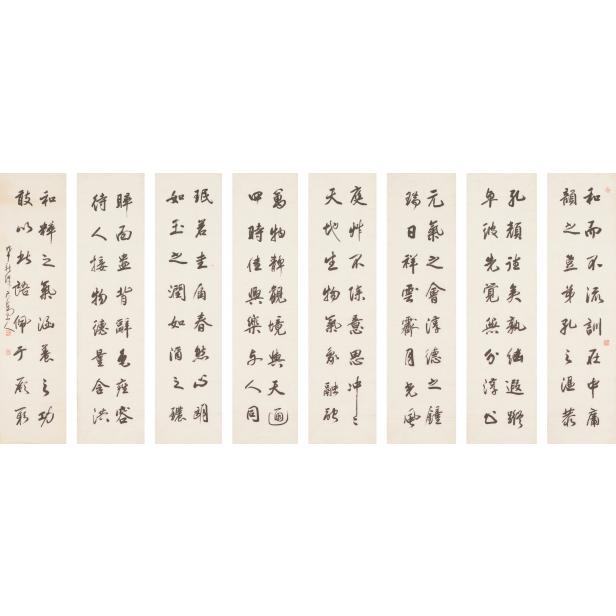 和而不流訓在中庸
顏之豈弟孔之溫恭
孔顏往矣孰繼遐蹤
卓彼先覺與分淳公
元氣之會淳德之鍾
瑞日祥雲霽月光風
庭艸不除意思冲〻
天地生物氣象融融
萬物靜觀境與天通
四時佳興樂與人同
珉若圭角春然心胸
如玉之潤如酒之醲
睟面盎背辭色雍容
待人接物德量含洪
和粹之氣涵養之功
敢以此語佩于厥躬